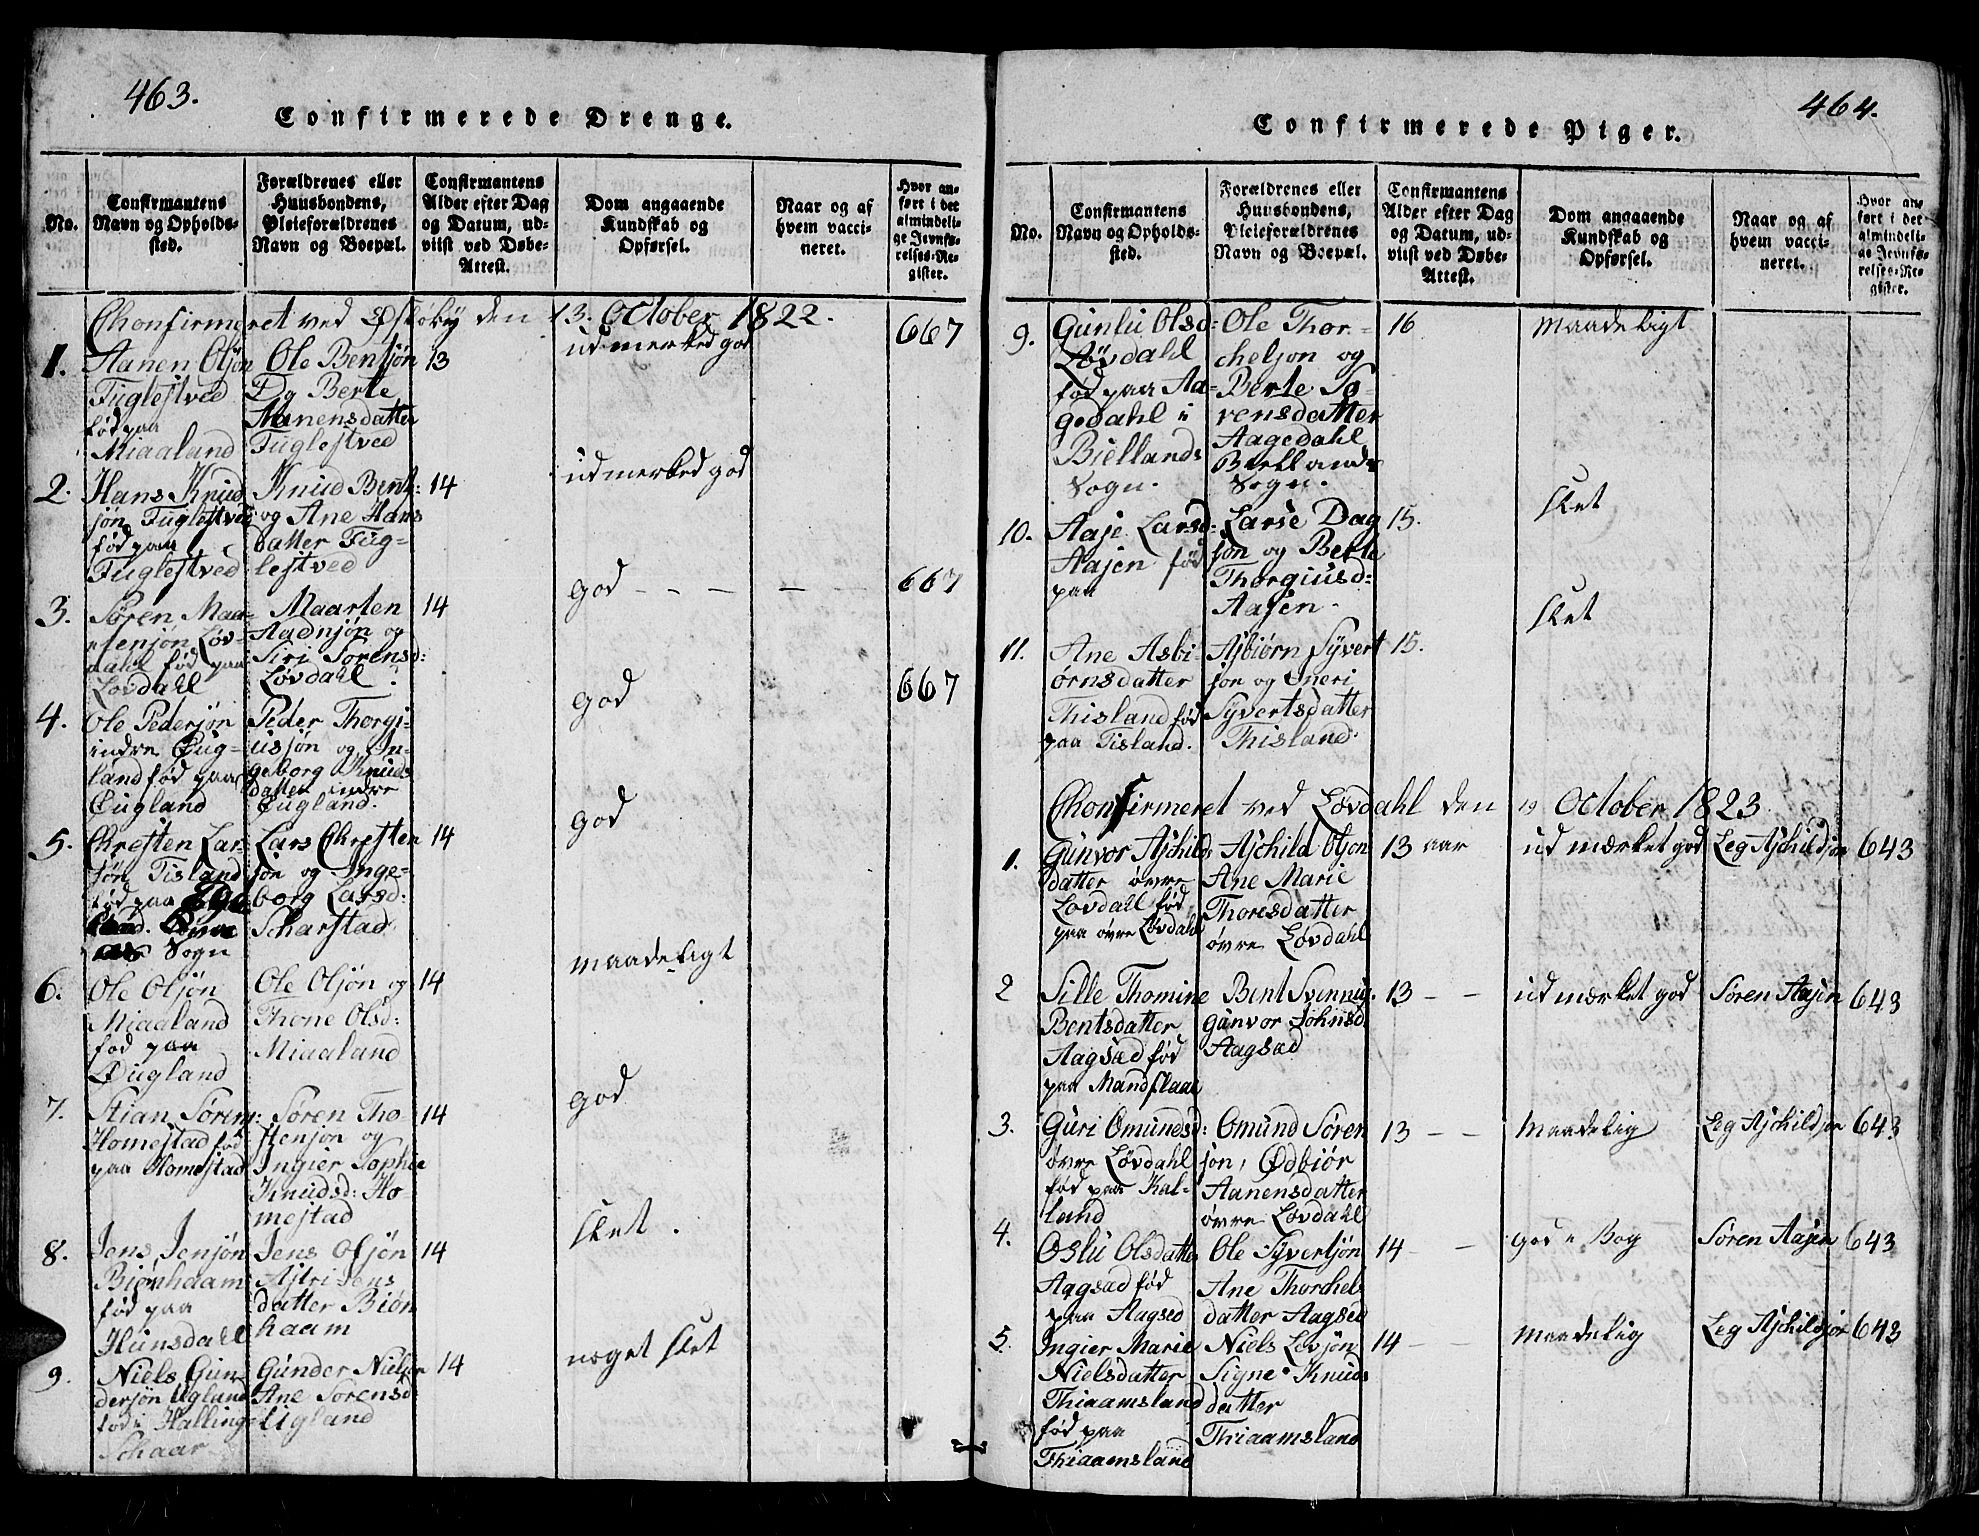 463.
Confirmerede Drenge.
No.
Confirmantens
Navn og Opholds-
sted.
Forældrenes eller
Huusbondens,
Pleieforældrenes
Navn og Boepæl.
Confirmantens
Alder efter Dag
og Datum, ud-
viist ved Døbe-
Attest.
Dom angaaende
Kundskab og
Opførsel.
Naar og af
hvem vacci-
neret.
Hvor an-
ført i det
almindeli-
ge Jevnfø-
relses-Re-
gister.
Chonfirmeret ved den 13. October 1822.
1. Aanen Olsøn
Fuglestved
fød paa
Miaaland
Ole Bentsøn
Og Berte
Aanensdatter
Fuglestved
13
udmerked god
667
2. Hans Knud
søn Fuglestved
fød paa
Fuglestved
Knud Bent:
og Ane Hans
datter Fug-
lestved
14
udmerked god
3. Søren Maa-
rtensøn Løv-
dahl fød paa
Lovdahl
Maarten
Aadnsøn og
Siri Sorensd:
Løvdahl
14
god - - - - -
667
4. Ole Pedersøn
indre Øug-
land fød paa
Øugland
Peder Thorgi-
ussøn og In-
geborg Knuds
datter indre
Øugland.
14
god
667
5. Chresten Lar-
søn Tisland
fød paa
Sogn
Lars Chresten
søn og Inge-
borg Larsd:
Scharstad
14
god
6. Ole Olsøn
Miaaland
fød paa
Øugland
Ole Olsøn og
Thone Olsd:
Miaaland
14
maadeligt
7. Stian Sørens:
Homestad fød
paa Homestad
Soren Tho
stensøn og
Ingier Sophie
Knudsd: Ho-
mestad
14
god
8. Jens Jensøn
Biønhdam
fød paa
Hunsdahl
Jens Olsøn
Astri Jens
datter Biøn
haam
14
slet.
9. Niels Gun-
dersøn Ugland
fød i Halling-
Schaar
Gunder Nielsøn
Ane Sorensd
Ugland
14
noget slet
464.
Confirmerede Piger.
No.
Confirmantens
Navn og Opholds-
sted.
Forældrenes eller
Huusbondens,
Pleieforældrenes
Navn og Boepæl.
Confirmantens
Alder efter Dag
og Datum, ud-
viist ved Døbe-
Attest.
Dom angaaende
Kundskab og
Opførsel.
Naar og af
hvem vacci-
neret.
Hvor an-
ført i det
almindeli-
ge Jevnfø-
relses-Re-
gister.
9. Gunlu Olsd:
Løvdahl
fød paa Aa-
gedahl i
Biellands
Sogn.
Ole Thor-
chelson og
Berte So-
rensdatter
Aagedahl
Biellands
Sogn.
16
maadeligt
10. Aase Larsd:
Aasen fød
paa
Larse Dag
søn og Berte
Thorgiusd:
Aasen.
15.
slet
11. Ane Asbi
ørnsdatter
Thisland fød
paa Tisland.
Asbiørn Syvert
søn og Sneri
Syvertsdatter
Thisland.
15.
slet
Chonfirmeret ved Løvdahl den 19 October 1823
1. Gunvor Aschilds
datter øvre
Løvdahl fød
paa øvre Løvdahl
Aschild Olson
Ane Marie
Thoresdatter
øvre Løvdahl
13 aar
udmærket god
Leg Aschildsøn
643
2 Sille Thomine
Bentsdatter
Aagsæd fød
paa Mandflaae
Bent Svennug.
Gunvor Johnsd
Aagsæd
13 - -
udmærket god
Søren Aasen
643
3. Guri Omundsd:
øvre Løvdahl
fød paa Kal-
land
Omund Søren
søn, Ødbiør
Aanensdatter
øvre Løvdahl
13 - -
Maadelig
Leg Aschildsøn
643
4. Oslu Olsdatter
Aagsæd fød
paa Aagsed
Ole Syvertsøn
Ane Thorchels
datter Aagsed
14 - -
god i Bog
Søren Aasen
643
5. Ingier Marie
Nielsdatter
Thiaamsland
fød paa
Thiaamsland
Niels Lovsøn
Signe Knuds
datter
Thiaamsland
14 - -
maadelig
Leg Aschildsøn
643